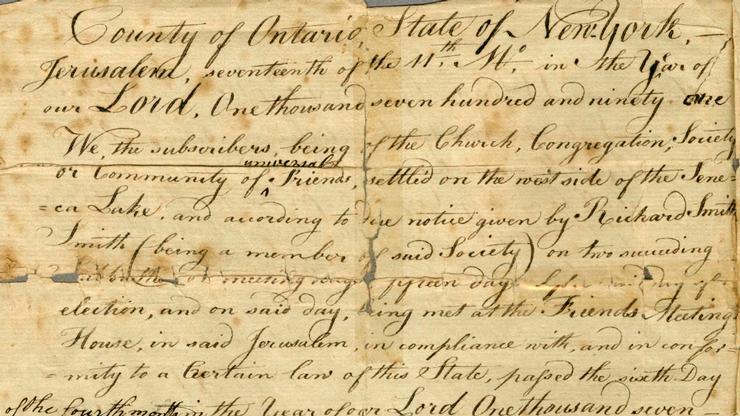 County of Ontario, State of New-York, —
Jerusalem, seventeenth of the 11th. Mo. in the Year of
our Lord, One thousand seven hundred and ninety one
We, the subscribers, being of the Church, Congregation, Society
universal
or Community of ^ Friends, settled on the west side of the Sene=
=ca Lake, and according to due notice given by Richard Smith
Smith (being a member of said Society) on two succeeding
or meeting days fifteen days
election, and on said day, being met at the Friends Meeting
House, in said Jerusalem, in compliance with, and in confor=
=mity to a Certain law of this State, passed the sixth Day
of the fourth month in the Year of our Lord One thousand seven